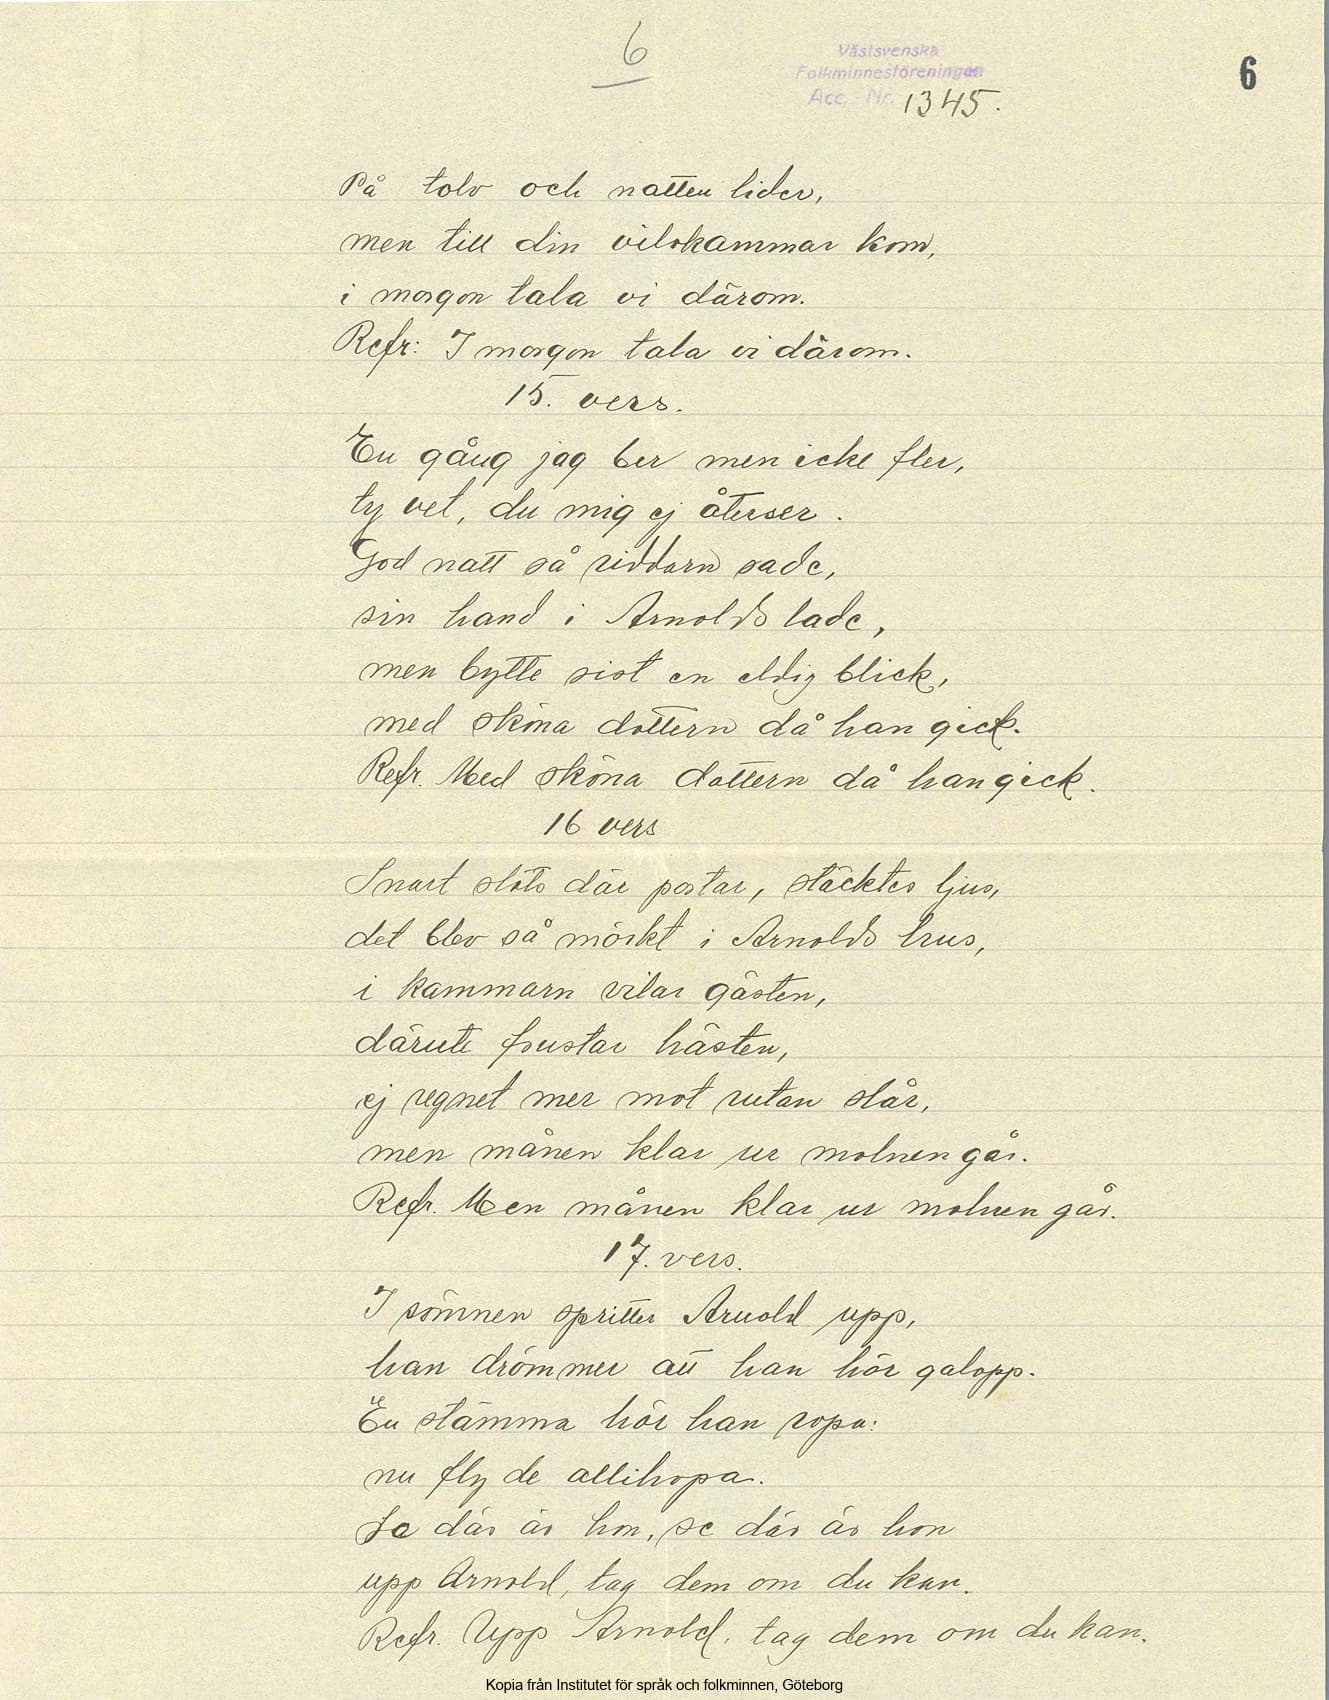 6
Västsvenska
Folkminnesföreningen
Acc. Nr. 1345.
6
På tolv och natten lider,
men till din vilokammar kom,
i morgon tala vi därom.
Refr: I morgon tala vi därom.
15. vers.
En gång jag ber men icke fler,
ty vet, du mig ej återser.
God natt så riddarn sade,
sin hand i Arnolds lade,
men bytte sist en eldig blick,
med sköna dottern då han gick.
Refr. Med sköna dottern då han gick.
16 vers
Snart slöts där portar, släcktes ljus,
det blev så mörkt i Arnolds hus,
i kammarn vilar gästen,
därute frustar hästen,
ej regnet mer mot rutan slår,
men månen klar ur molnen går.
Refr. Men månen klar ur molnen går.
17. vers.
I sömnen spritter Arnold upp,
han drömmer att han hör galopp.
En stämma hör han ropa:
nu fly de allihopa.
Se där är hon, se där är hon
upp Arnold, tag dem om du kan.
Refr. Upp Arnold, tag dem om du kan.
Kopia från Institutet för språk och folkminnen, Göteborg